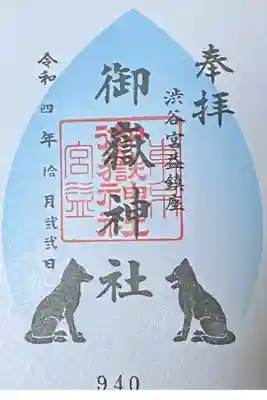 奉拝
渋谷宮益鎮座
御嶽神社
令和四年拾月弐弐日
940